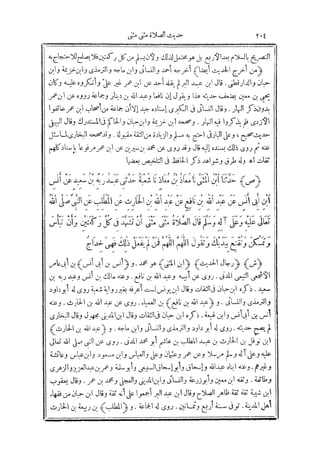 ٢٠٤ حديث الصلاة مثنى مثنى
التصريح بالسلام بعد الأربع بل هو محتمل لذلك ولأن يسلم من كل ركعتين فلا يصلح للاحتجاج به
(من أخرج الحديث أيضا) أخرجه أحمد والنسائى وابن ماجه والترمذى وابن خزيمة وابن
حبان والدارقطنى. قال ابن عبد البر لم يقله أحد عن ابن عمر غير على وأنكروه عليه وكان
يحيى بن معين يضعف حديثه هذا ويقول إن نافعا وعبد الله بن دينار وجماعة رووه عن ابن عمر
بدون ذكر النهار. وقال النسائى فى الكبرى إسناده جيد إلا أن جماعة من أصحاب ابن عمر خالفوا
الأزدى فلم يذكروا فيه النهار. وصححه ابن خزيمة وابن حبان والحاكم فى المستدرك وقال البيهقى
حديث صحيح، وعلى البارقى احتج به مسلم والزيادة من الثقة مقبولة. وقد صححه البخارى لما سئل
عنه ثم روى ذلك بسنده إليه قال وقد روى عن محمد بن سيرين عن ابن عمر مرفوعا بإسناد كلهم
ثقات اهـ وله طرق وشواهد ذكر الحافظ فى التلخيص بعضها
(ص) حدثنا ابن المثنى نا معاذ بن معاذ نا شعبة حدثنى عبد ربه بن سعيد عن أنس
ابن أبى أنس عن عبد الله بن نافع عن عبد الله بن الحارث عن المطلب عن النبى صلى الله
تعالى عليه وعلى آله وسلم قال الصلاة مثنى مثنى أن تشهد فى كل ركعتين وأن تبأس
وتمسكن وتقنع بيديك وتقول اللهم اللهم فمن لم يفعل ذلك فهى خداج
(ش) (رجال الحديث) (ابن المثنى) هو محمد. و (أنس بن أبى أنس) بن أبى عامر
الأصبحى التيمى المدنى. روى عن أبيه وعبد الله بن نافع. وعنه مالك بن أنس وعبد ربه بن
سعيد. ذكره ابن حبان فى الثقات وقال ابن يونس لست أعرفه بغير رواية شعبة روى له أبو داود
والترمذى والنسائى. و (عبد الله بن نافع) بن العمياء. روى عن عبد الله بن الحارث. وعنه
أنس بن أبى أنس وابن لهيعة. ذكره ابن حبان فى الثقات وقال ابن المدينى مجهول وقال البخارى
لم يصح حديثه. روى له أبو داود والترمذى والنسائى وابن ماجه. و (عبد الله بن الحارث)
ابن نوفل بن الحارث بن عبد المطلب بن هاشم أبو محمد المدنى. روى عن النبى صلى الله تعالى
عليه وعلى آله وسلم مرسلا وعن عمر وعثمان وعلى والعباس وابن مسعود وابن عباس وعائشة
وغيرهم. وعنه ابناه عبد الله وإسحاق وأبو إسحاق السبيعى وأبو سلمة وعمر بن عبد العزيز والزهرى
وطائفة. وثقه ابن معين وأبو زرعة والنسائى وابن المدينى والعجلى ومحمد بن عمر. وقال يعقوب
ابن شيبة ثقة ثقة ظاهر الصلاح وقال ابن عبد البر أجمعوا على أنه ثقة وقال ابن حبان من فقهاء
أهل المدينة. توفى سنة أربع وثمانين. روى له الجماعة. و (المطلب) بن ربيعة بن الحارث